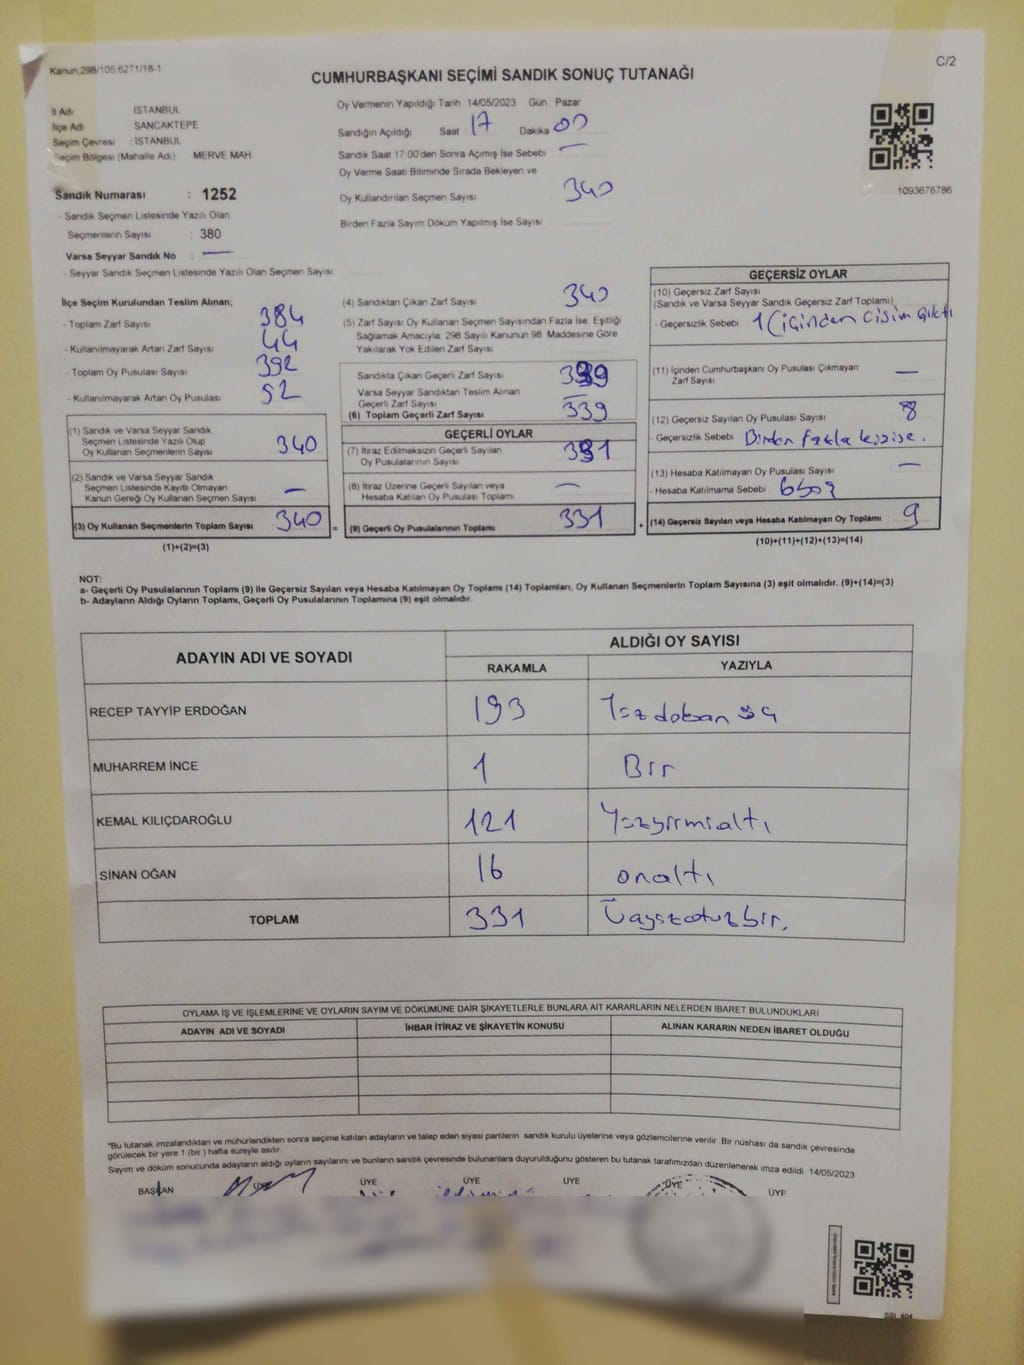 Kanun:298/105 6271/18-1
C/2
CUMHURBAŞKANI SEÇİMİ SANDIK SONUÇ TUTANAĞI
İl Adı İSTANBUL
İlçe Adı SANCAKTEPE
Seçim Çevresi : İSTANBUL
Seçim Bölgesi (Mahalle Adı) MERVE MAH
Sandık Numarası : 1252
- Sandık Seçmen Listesinde Yazılı Olan
Seçmenlerin Sayısı : 380
Varsa Seyyar Sandık No —
- Seyyar Sandık Seçmen Listesinde Yazılı Olan Seçmen Sayısı
Oy Vermenin Yapıldığı Tarih 14/05/2023 Gün Pazar
Sandığın Açıldığı Saat 17 Dakika 00
Sandık Saat 17 00'den Sonra Açılmış İse Sebebi —
Oy Verme Saati Bitiminde Sırada Bekleyen ve
Oy Kullandırılan Seçmen Sayısı 340
Birden Fazla Sayım Döküm Yapılmış İse Sayısı
1093676786
İlçe Seçim Kurulundan Teslim Alınan;
- Toplam Zarf Sayısı 384
- Kullanılmayarak Artan Zarf Sayısı 44
- Toplam Oy Pusulası Sayısı 392
- Kullanılmayarak Artan Oy Pusulası 52
(1) Sandık ve Varsa Seyyar Sandık
Seçmen Listesinde Yazılı Olup
Oy Kullanan Seçmenlerin Sayısı 340
(2) Sandık ve Varsa Seyyar Sandık
Seçmen Listesinde Kayıtlı Olmayan
Kanun Gereği Oy Kullanan Seçmen Sayısı —
(3) Oy Kullanan Seçmenlerin Toplam Sayısı 340 =
(1)+(2)=(3)
(4) Sandıktan Çıkan Zarf Sayısı 340
(5) Zarf Sayısı Oy Kullanan Seçmen Sayısından Fazla İse, Eşitliği
Sağlamak Amacıyla, 298 Sayılı Kanunun 98. Maddesine Göre
Yakılarak Yok Edilen Zarf Sayısı
Sandıkta Çıkan Geçerli Zarf Sayısı 339
Varsa Seyyar Sandıktan Teslim Alınan
Geçerli Zarf Sayısı —
(6) Toplam Geçerli Zarf Sayısı 339
GEÇERLİ OYLAR
(7) İtiraz Edilmeksizin Geçerli Sayılan
Oy Pusulalarının Sayısı 331
(8) İtiraz Üzerine Geçerli Sayılan veya
Hesaba Katılan Oy Pusulası Toplamı —
(9) Geçerli Oy Pusulalarının Toplamı 331 +
GEÇERSİZ OYLAR
(10) Geçersiz Zarf Sayısı
(Sandık ve Varsa Seyyar Sandık Geçersiz Zarf Toplamı)
- Geçersizlik Sebebi 1 (içinden cisim çıktı
(11) İçinden Cumhurbaşkanı Oy Pusulası Çıkmayan
Zarf Sayısı —
(12) Geçersiz Sayılan Oy Pusulası Sayısı 8
- Geçersizlik Sebebi Birden fazla kişiye.
(13) Hesaba Katılmayan Oy Pusulası Sayısı —
- Hesaba Katılmama Sebebi
(14) Geçersiz Sayılan veya Hesaba Katılmayan Oy Toplamı 9
(10)+(11)+(12)+(13)=(14)
NOT:
a- Geçerli Oy Pusulalarının Toplamı (9) ile Geçersiz Sayılan veya Hesaba Katılmayan Oy Toplamı (14) Toplamları, Oy Kullanan Seçmenlerin Toplam Sayısına (3) eşit olmalıdır. (9)+(14)=(3)
b- Adayların Aldığı Oyların Toplamı, Geçerli Oy Pusulalarının Toplamına (9) eşit olmalıdır.
ADAYIN ADI VE SOYADI ALDIĞI OY SAYISI
RAKAMLA YAZIYLA
RECEP TAYYİP ERDOĞAN 193 Yüzdoksan üç
MUHARREM İNCE 1 Bir
KEMAL KILIÇDAROĞLU 121 Yüzyirmialtı
SİNAN OĞAN 16 onaltı
TOPLAM 331 Üçyüzotuzbir.
OYLAMA İŞ VE İŞLEMLERİNE VE OYLARIN SAYIM VE DÖKÜMÜNE DAİR ŞİKAYETLERLE BUNLARA AİT KARARLARIN NELERDEN İBARET BULUNDUKLARI
ADAYIN ADI VE SOYADI İHBAR İTİRAZ VE ŞİKAYETİN KONUSU ALINAN KARARIN NEDEN İBARET OLDUĞU
*Bu tutanak imzalandıktan ve mühürlendikten sonra seçime katılan adayların ve talep eden siyasi partilerin sandık kurulu üyelerine veya gözlemcilerine verilir. Bir nüshası da sandık çevresinde
görülecek bir yere 1 (bir ) hafta süreyle asılır
Sayım ve döküm sonucunda adayların aldığı oyların sayılarını ve bunların sandık çevresinde bulunanlara duyurulduğunu gösteren bu tutanak tarafımızdan düzenlenerek imza edildi. 14/05/2023
BAŞKAN ÜYE ÜYE ÜYE ÜYE ÜYE ÜYE